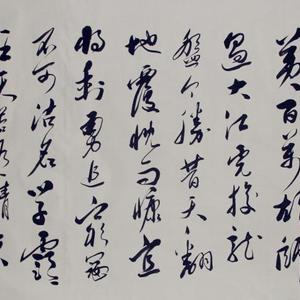 黃百萬雄師
過大江虎踞龍
盤今勝昔天翻
地覆慨而慷宜
將剩勇追窮寇
不可沽名學霸
王天若有情天